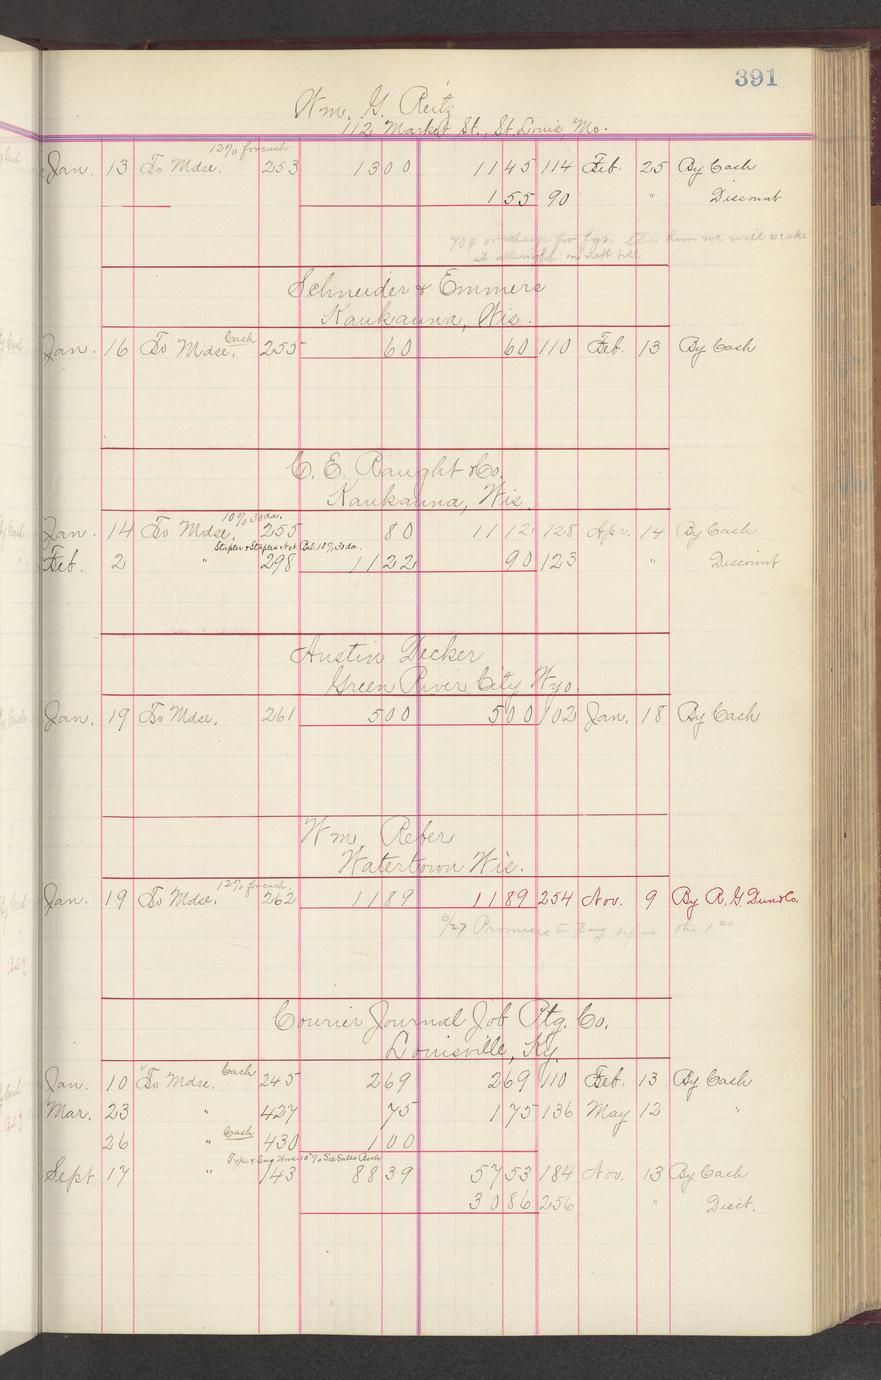 391
Wm. G. Reitz
112 Market St., St. Louis Mo.
12% for cash
Jan. 13 To Mdse. 253 13 00 11 45 114 Feb. 25 By Cash
1 55 90 " Discount
70¢ overcharge for fgt. told him we will make
it allright on next bill
Schneider & Emmers
Kaukauna, Wis.
Cash
Jan. 16 To Mdse. 255 60 60 110 Feb. 13 By Cash
C. E. Raught & Co.
Kaukauna, Wis.
10% 30 da.
Jan 14 To Mdse. 255 80 11 12 128 Apr. 14 By Cash
Stapler & Staples Net Bal. 10% 30 da.
Feb. 2 " 298 11 22 90 123 " Discount
Austin Decker
Green River City Wyo.
Jan. 19 To Mdse. 261 5 00 5 00 102 Jan. 18 By Cash
Wm. Reber
Watertown Wis.
12% for cash.
Jan. 19 To Mdse. 262 11 89 11 89 254 Nov. 9 By R. G. Dun & Co.
6/27 Promises to pay the 1st
Courier Journal Job Ptg. Co.
Louisville, Ky.
Cash
Jan. 10 To Mdse. 245 2 69 2 69 110 Feb. 13 By Cash
Mar. 23 " 427 75 1 75 136 May 12 "
Cash
26 " 430 1 00
Type & Eng. Wood 10% See Sales Book
Sept. 17 " 143 88 39 57 53 184 Nov. 13 By Cash
30 86 256 " Disct.